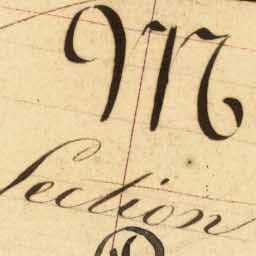 M
Section